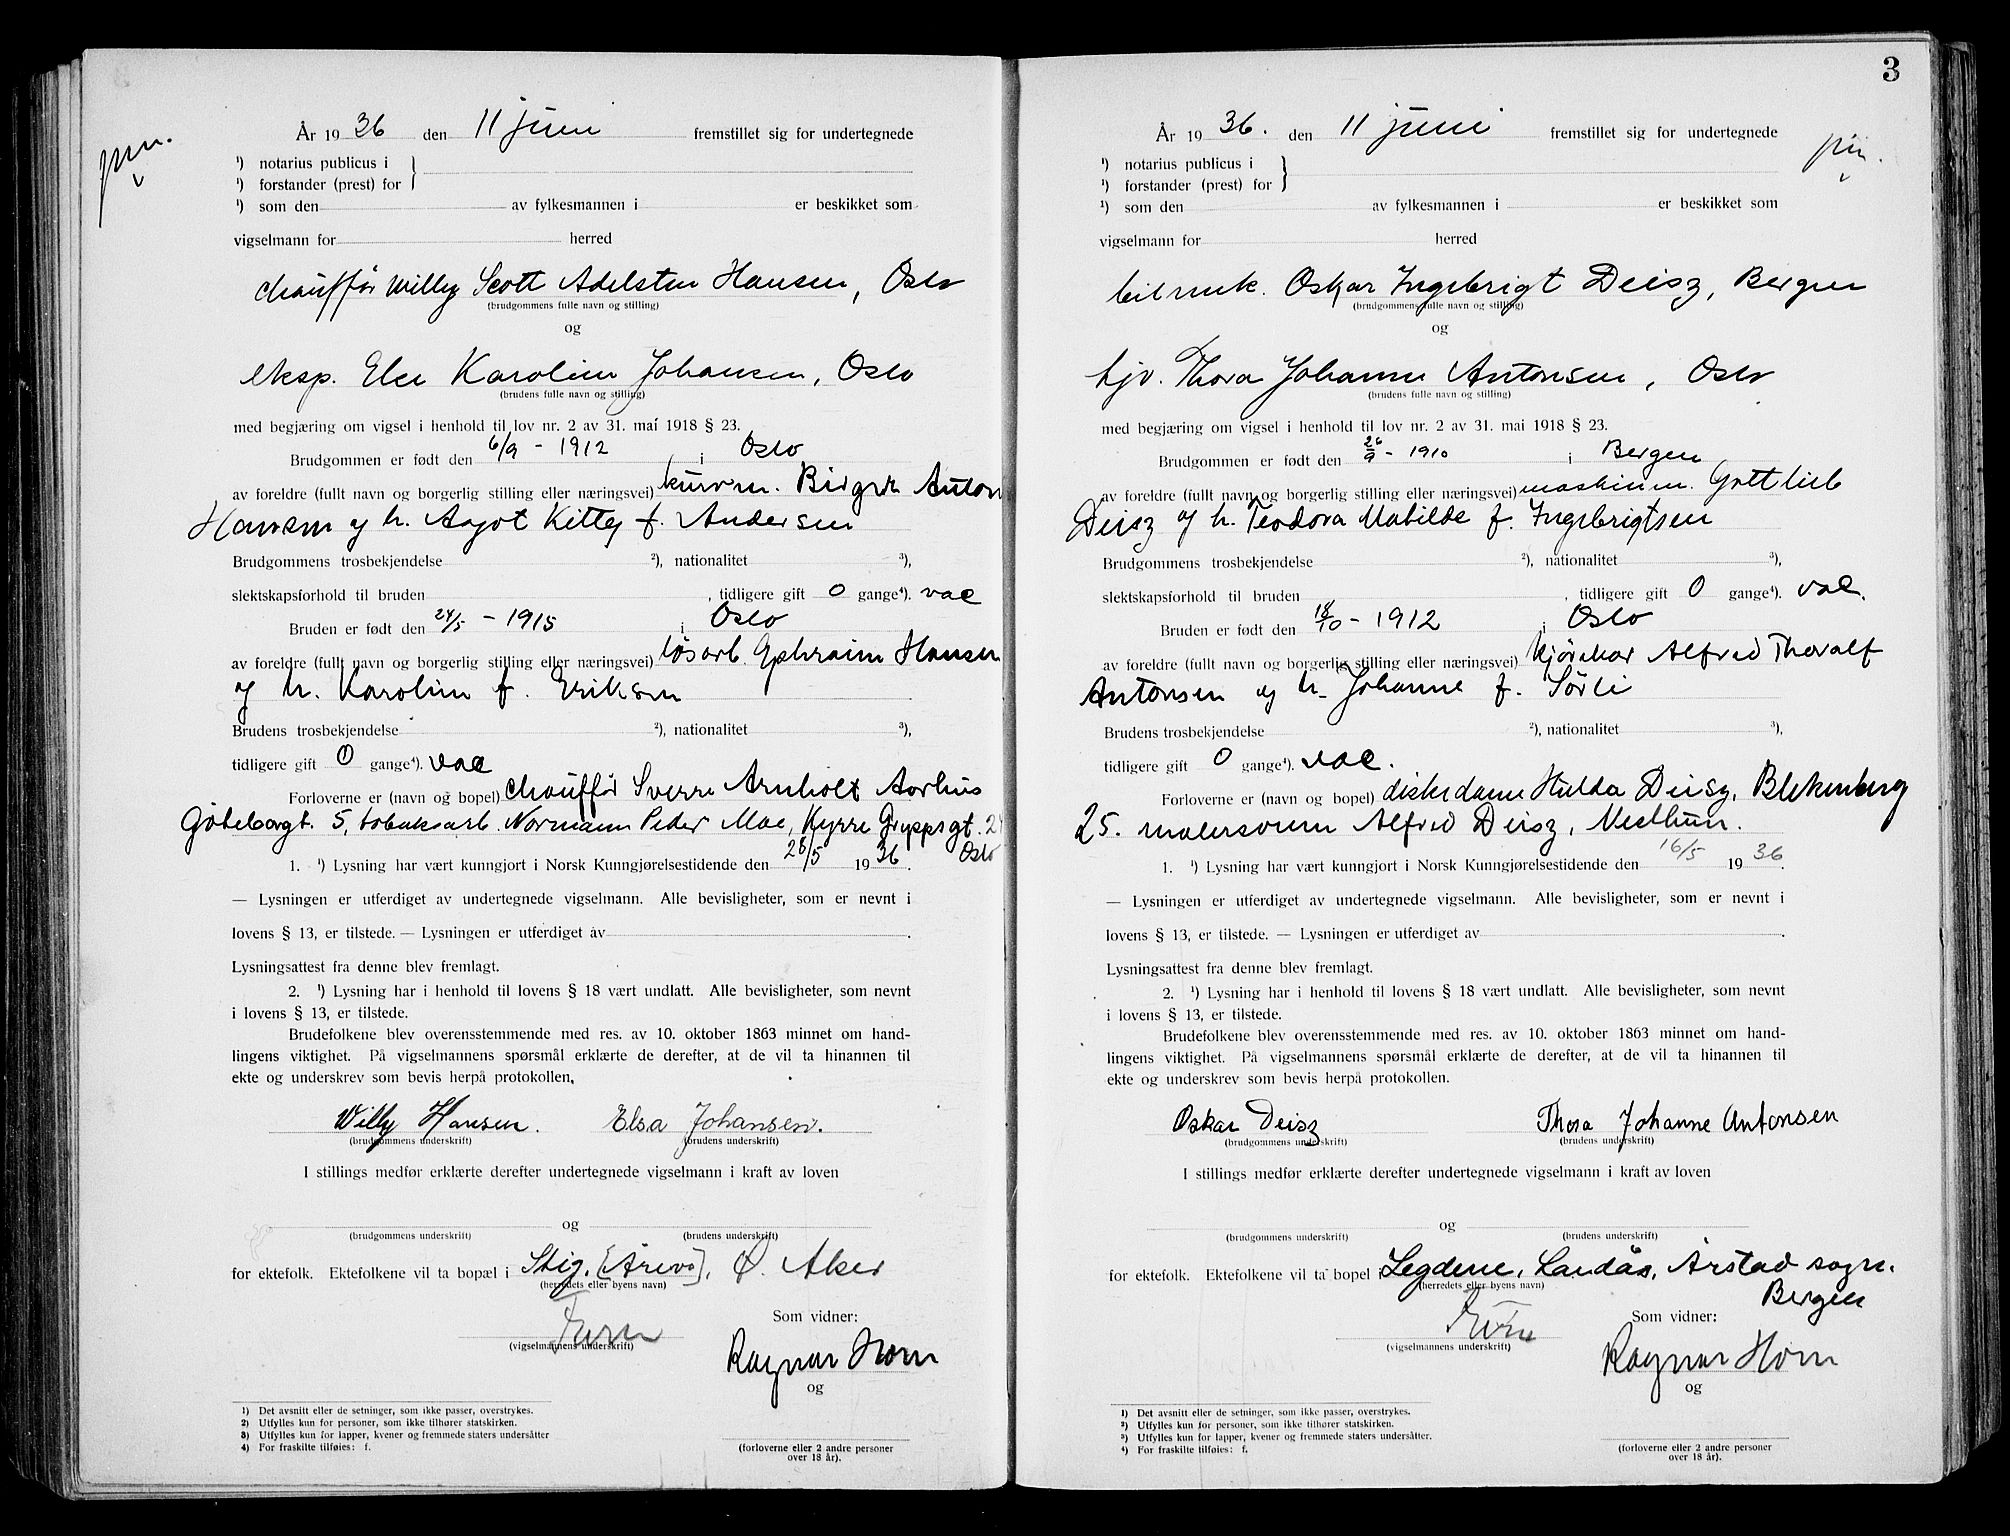 År 1936 den 11 juni fremstillet sig for undertegnede
¹) notarius publicus i
¹) forstander (prest) for
¹) som den av fylkesmannen i er beskikket som
vigselmann for herred
chauffør Willy Scott Adelsten Hansen, Oslo
(brudgommens fulle navn og stilling)
og
eksp. Else Karoline Johansen, Oslo
(brudens fulle navn og stilling)
med begjæring om vigsel i henhold til lov nr. 2 av 31. mai 1918 § 23.
Brudgommen er født den 6/9 - 1912 i Oslo
av foreldre (fullt navn og borgerlig stilling eller næringsvei) kurvm. Birger Anton
Hansen og h. Aagot Kitty f. Andersen
Brudgommens trosbekjendelse ²), nationalitet ³),
slektskapsforhold til bruden , tidligere gift 0 gange⁴). vac
Bruden er født den 24/5 - 1915 i Oslo
av foreldre (fullt navn og borgerlig stilling eller næringsvei) løsarb. Ephraim Hansen
og h. Karoline f. Eriksen
Brudens trosbekjendelse ²), nationalitet ³),
tidligere gift 0 gange⁴). vac
Forloverne er (navn og bopel) chauffør Sverre Arnholt Aarhus
Gøteborgt. 5, tobaksarb. Normann Peder Moe, Kyrre Gryppsgt. 24
Oslo
1. ¹) Lysning har vært kunngjort i Norsk Kunngjørelsestidende den 28/5 1936.
— Lysningen er utferdiget av undertegnede vigselmann. Alle bevisligheter, som er nevnt i
lovens § 13, er tilstede. — Lysningen er utferdiget av .
Lysningsattest fra denne blev fremlagt.
2. ¹) Lysning har i henhold til lovens § 18 vært undlatt. Alle bevisligheter, som nevnt
i lovens § 13, er tilstede.
Brudefolkene blev overensstemmende med res. av 10. oktober 1863 minnet om hand-
lingens viktighet. På vigselmannens spørsmål erklærte de derefter, at de vil ta hinannen til
ekte og underskrev som bevis herpå protokollen.
Willy Hansen. Elsa Johansen.
(brudgommens underskrift) (brudens underskrift)
I stillings medfør erklærte derefter undertegnede vigselmann i kraft av loven
og
(brudgommens underskrift) (brudens underskrift)
for ektefolk. Ektefolkene vil ta bopæl i Stig, [Årvo], Ø. Aker
(herredets eller byens navn)
Som vidner:
(vigselmannens underskrift)
Ragnar Horn
og
¹) Det avsnitt eller de setninger, som ikke passer, overstrykes.
²) Utfylles kun for personer, som ikke tilhører statskirken.
³) Utfylles kun for lapper, kvener og fremmede staters undersåtter
⁴) For fraskilte tilføies: f.
(forloverne eller 2 andre personer
over 18 år).
3
År 1936. den 11 juni fremstillet sig for undertegnede
¹) notarius publicus i
¹) forstander (prest) for
¹) som den av fylkesmannen i er beskikket som
vigselmann for herred
bilmek. Oskar Ingebrigt Deisz, Bergen
(brudgommens fulle navn og stilling)
og
hjv. Thora Johanne Antonsen, Oslo
(brudens fulle navn og stilling)
med begjæring om vigsel i henhold til lov nr. 2 av 31. mai 1918 § 23.
Brudgommen er født den 26/9 - 1910 i Bergen
av foreldre (fullt navn og borgerlig stilling eller næringsvei) maskinm. Gottlieb
Deisz og h. Teodora Matilde f. Ingebrigtsen
Brudgommens trosbekjendelse ²), nationalitet ³),
slektskapsforhold til bruden , tidligere gift 0 gange⁴). vac.
Bruden er født den 18/10 - 1912 i Oslo
av foreldre (fullt navn og borgerlig stilling eller næringsvei) kjørekar Alfred Thoralf
Antonsen og h. Johanne f. Sørli
Brudens trosbekjendelse ²), nationalitet ³),
tidligere gift 0 gange⁴). vac.
Forloverne er (navn og bopel) diskedame Hulda Deisz, Blekenberg
25. malersvenn Alfred Deisz, Nesttun.
1. ¹) Lysning har vært kunngjort i Norsk Kunngjørelsestidende den 16/5 1936.
— Lysningen er utferdiget av undertegnede vigselmann. Alle bevisligheter, som er nevnt i
lovens § 13, er tilstede. — Lysningen er utferdiget av .
Lysningsattest fra denne blev fremlagt.
2. ¹) Lysning har i henhold til lovens § 18 vært undlatt. Alle bevisligheter, som nevnt
i lovens § 13, er tilstede.
Brudefolkene blev overensstemmende med res. av 10. oktober 1863 minnet om hand-
lingens viktighet. På vigselmannens spørsmål erklærte de derefter, at de vil ta hinannen til
ekte og underskrev som bevis herpå protokollen.
Oskar Deisz Thora Johanne Antonsen
(brudgommens underskrift) (brudens underskrift)
I stillings medfør erklærte derefter undertegnede vigselmann i kraft av loven
og
(brudgommens underskrift) (brudens underskrift)
for ektefolk. Ektefolkene vil ta bopel i Legdene, Landås, Årstad sogn.
(herredets eller byens navn) Bergen
Som vidner:
(vigselmannens underskrift)
Ragnar Horn
og
¹) Det avsnitt eller de setninger, som ikke passer, overstrykes.
²) Utfylles kun for personer, som ikke tilhører statskirken.
³) Utfylles kun for lapper, kvener og fremmede staters undersåtter.
⁴) For fraskilte tilføies: f.
(forloverne eller 2 andre personer
over 18 år).